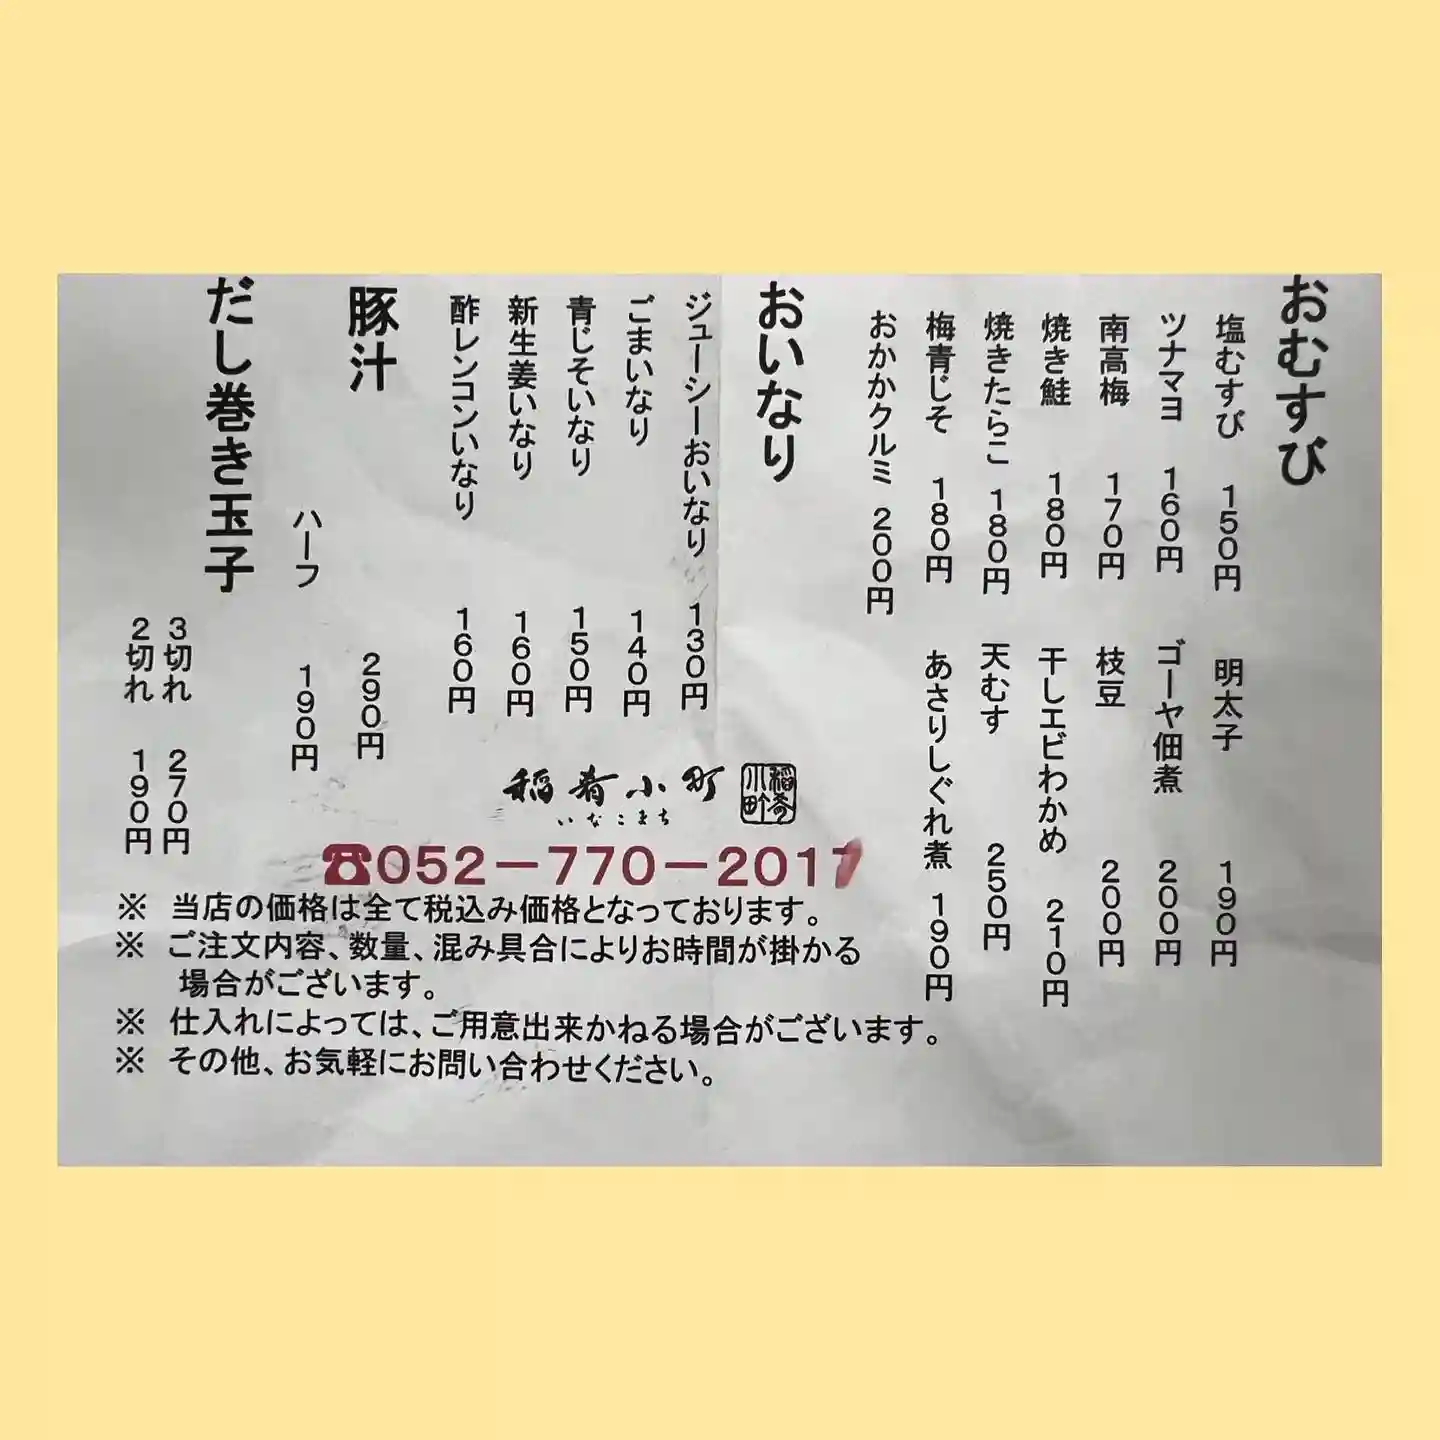 おむすび
塩むすび 150円 明太子 190円
ツナマヨ 160円 ゴーヤ佃煮 200円
南高梅 170円 枝豆 200円
焼き鮭 180円 干しエビわかめ 210円
焼きたらこ 180円 天むす 250円
梅青じそ 180円 あさりしぐれ煮 190円
おかかクルミ 200円
おいなり
ジューシーおいなり 130円
ごまいなり 140円
青じそいなり 150円
新生姜いなり 160円
酢レンコンいなり 160円
豚汁 290円
ハーフ 190円
だし巻き玉子
3切れ 270円
2切れ 190円
稲肴小町
いなこまち
稲肴小町
☎052-770-2017
※ 当店の価格は全て税込み価格となっております。
※ ご注文内容、数量、混み具合によりお時間が掛かる
場合がございます。
※ 仕入れによっては、ご用意出来かねる場合がございます。
※ その他、お気軽にお問い合わせください。